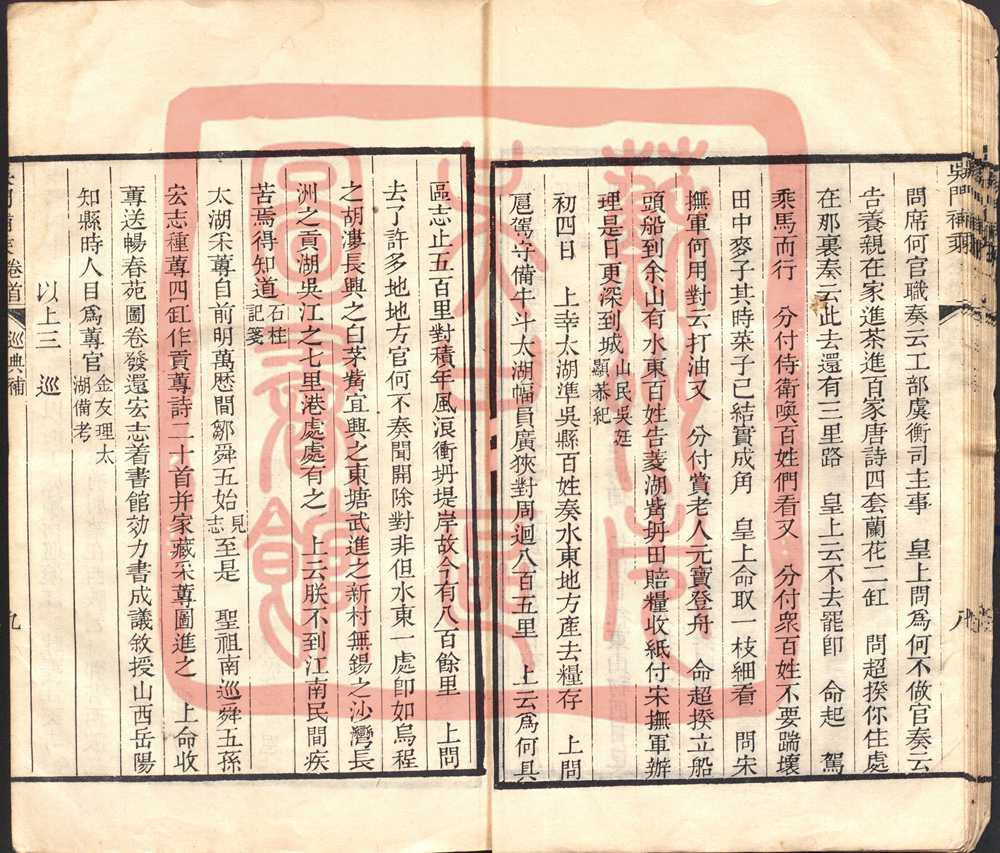 問席何官職奏云工部虞衡司主事　皇上問爲何不做官奏云
告養親在家進茶進百家唐詩四套蘭花二缸　問超揆你住處
在那裏奏云此去還有三里路　皇上云不去罷卽　命起　駕
乘馬而行　分付侍衛喚百姓們看又　分付衆百姓不要踹壞
田中麥子其時菜子已結實成角　皇上命取一枝細看　問宋
撫軍何用對云打油又　分付賞老人元寶登舟　命超揆立船
頭船到余山有水東百姓告菱湖觜坍田賠糧收紙付宋撫軍辦
理是日更深到城山民吳廷顯恭紀
初四日　上幸太湖準吳縣百姓奏水東地方產去糧存　上問
扈駕守備牛斗太湖幅員廣狹對周迴八百五里　上云爲何具
區志止五百里對積年風浪衝坍堤岸故今有八百餘里　上問
去了許多地地方官何不奏聞開除對非但水東一處卽如烏程
之胡漊長興之白茅觜宜興之東塘武進之新村無錫之沙灣長
洲之貢湖吳江之七里港處處有之　上云朕不到江南民間疾
苦焉得知道石柱記箋
太湖采蓴自前明萬歷間鄒舜五始見志至是　聖祖南巡舜五孫
宏志種蓴四缸作貢蓴詩二十首并家藏采蓴圖進之　上命收
蓴送暢春苑圖卷發還宏志着書館効力書成議敘授山西岳陽
知縣時人目爲蓴官金友理太湖備考
以上三　巡
卷首　巡典補　九